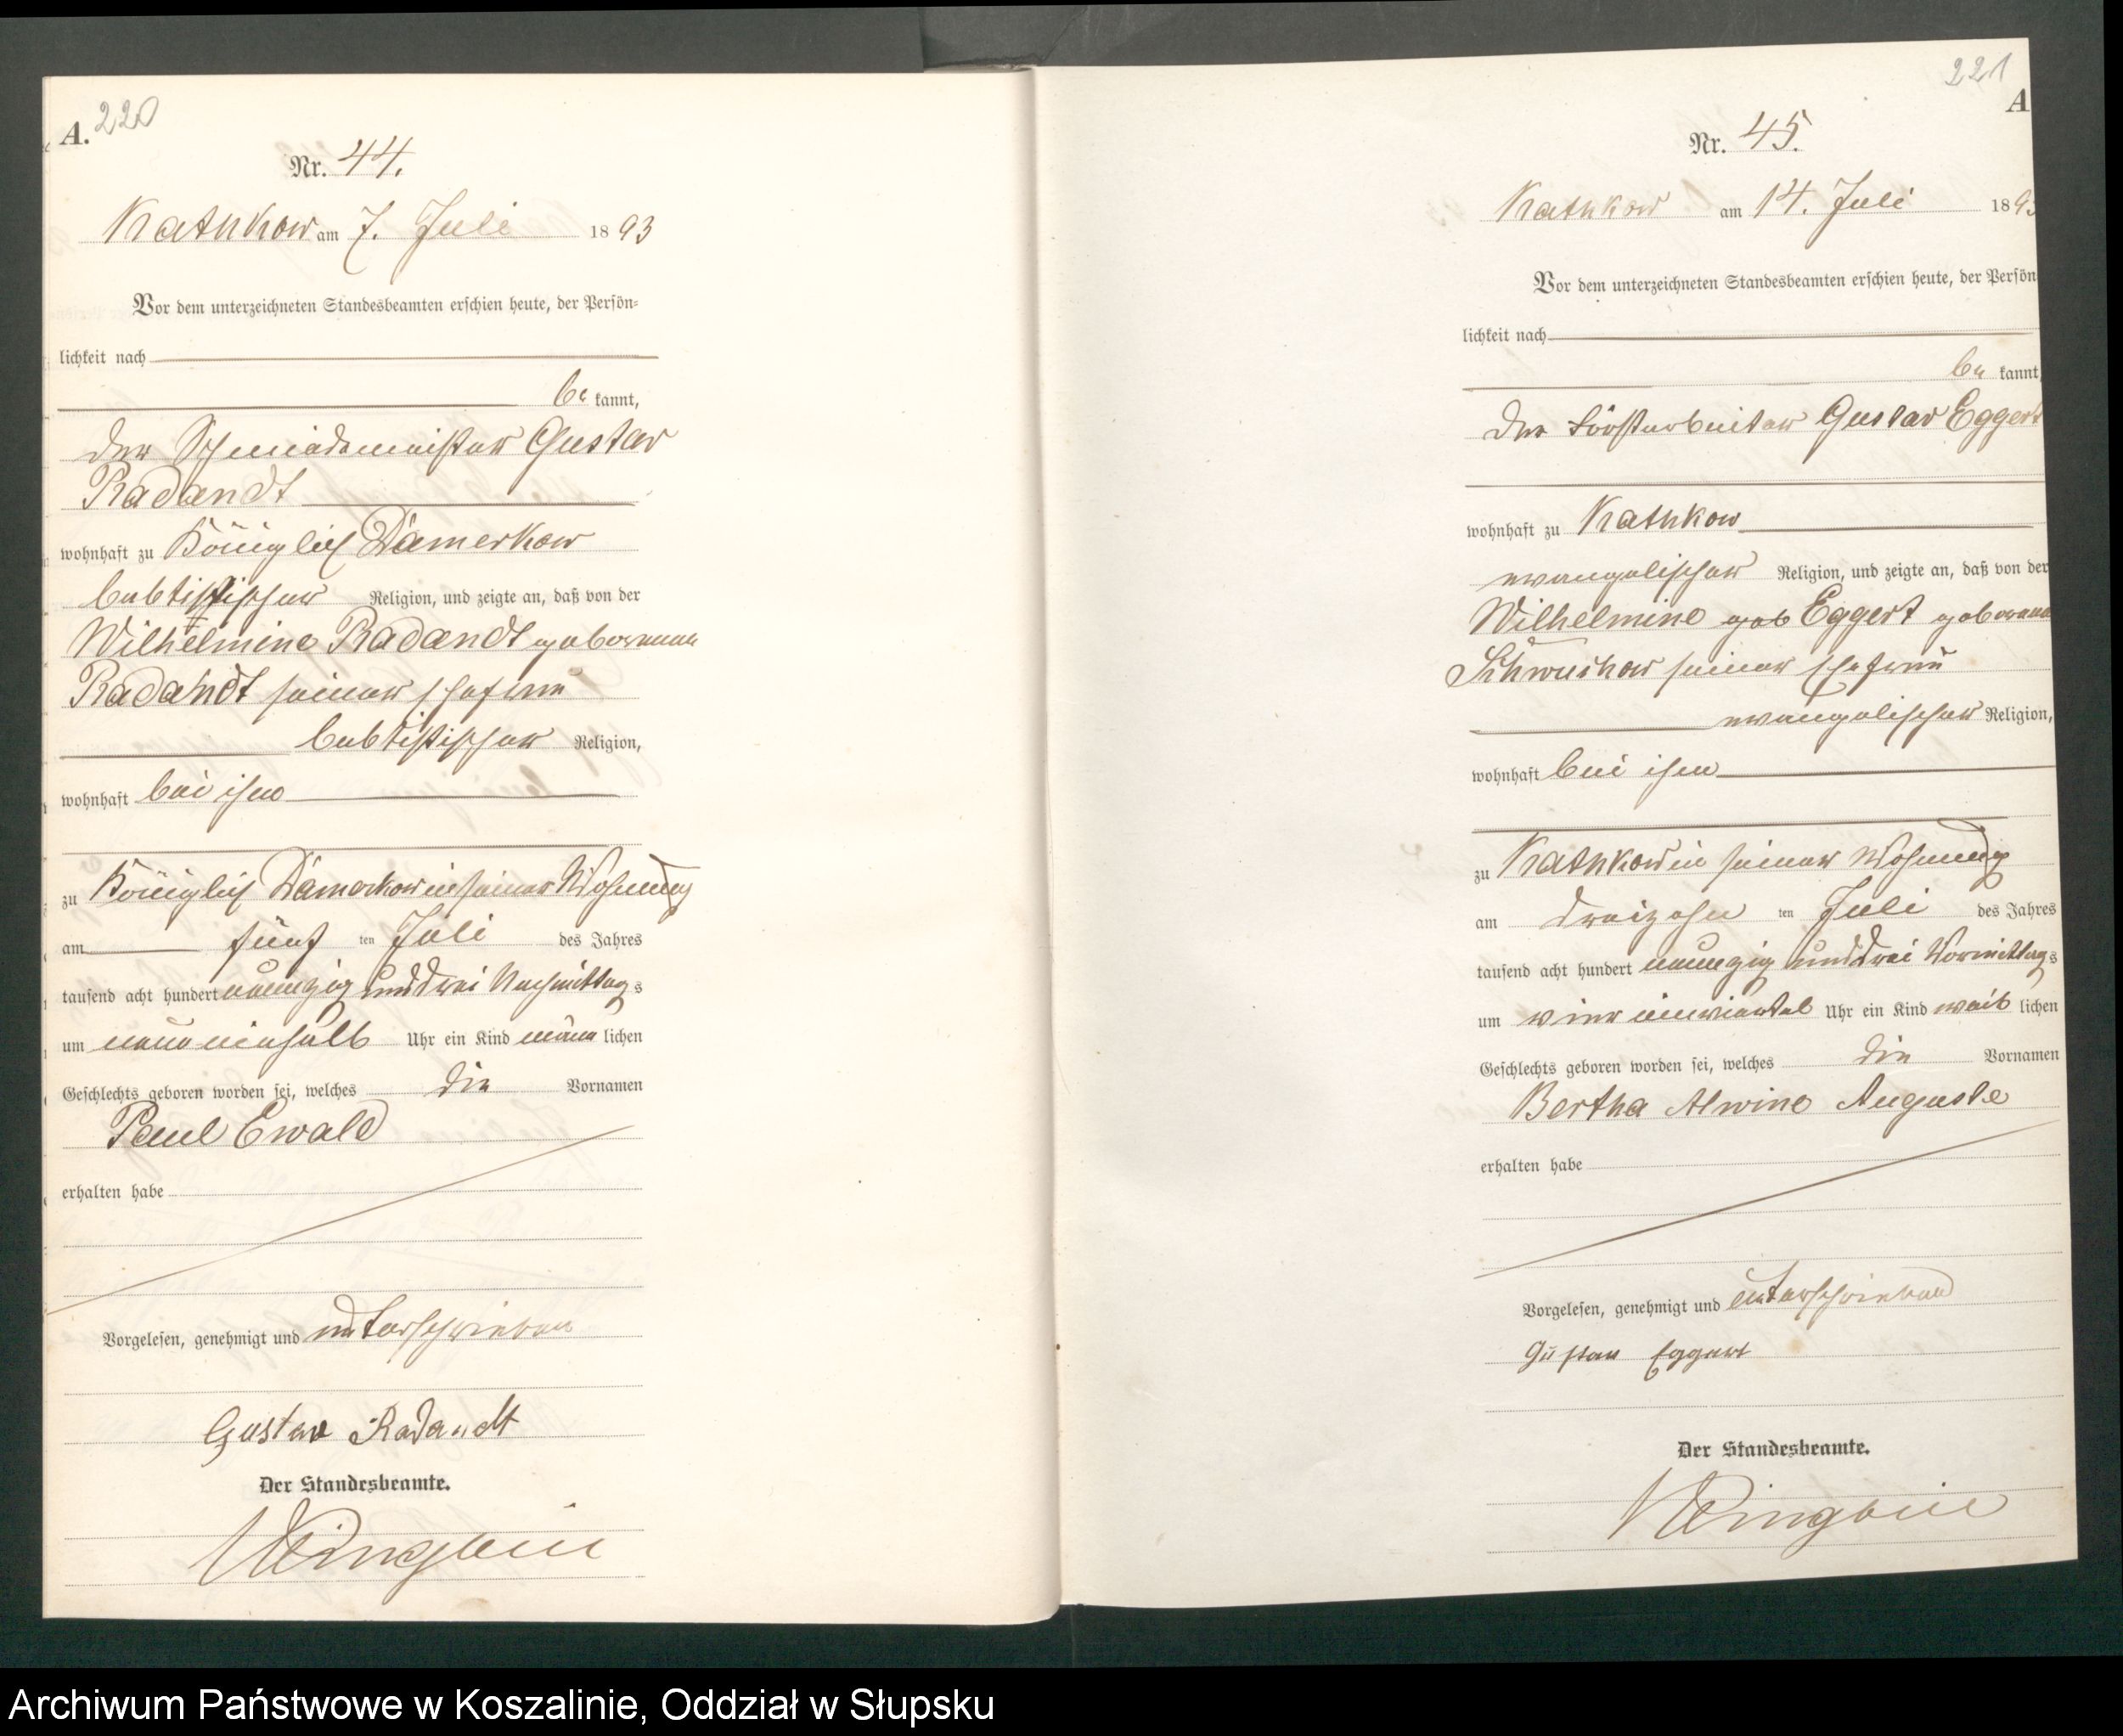 220
A.
Nr. 44.
Kathkow am 7. Juli 1893
Vor dem unterzeichneten Standesbeamten erschien heute, der Persön=
lichkeit nach
be kannt,
der Schmiedemeister Gustav
Radandt
wohnhaft zu Königlich Damerkow
babtistischer Religion, und zeigte an, daß von der
Wilhelmine Radandt geborenen
Radandt seiner Ehefrau
babtistischer Religion,
wohnhaft bei ihm
zu Königlich Damerkow in seiner Wohnung
am fünf ten Juli des Jahres
tausend acht hundert neunzig und drei Nachmittags
um neun einhalb Uhr ein Kind männ lichen
Geschlechts geboren worden sei, welches die Vornamen
Paul Ewald
erhalten habe
Vorgelesen, genehmigt und unterschrieben
Gustav Radandt
Der Standesbeamte.
221
A
Nr. 45.
Kathkow am 14. Juli 189
Vor dem unterzeichneten Standesbeamten erschien heute, der Persön
lichkeit nach
be kannt,
der Forstarbeiter Gustav Eggert
wohnhaft zu Kathkow
evangelischer Religion, und zeigte an, daß von der
Wilhelmine geb Eggert geborenen
Schwuchow seiner Ehefrau
evangelischer Religion,
wohnhaft bei ihm
zu Kathkow in seiner Wohnung
am dreizehn ten Juli des Jahres
tausend acht hundert neunzig und drei Vormittags
um vier einviertel Uhr ein Kind weib lichen
Geschlechts geboren worden sei, welches die Vornamen
Bertha Alwine Auguste
erhalten habe
Vorgelesen, genehmigt und unterschrieben
Gustav Eggert
Der Standesbeamte.
Archiwum Państwowe w Koszalinie, Oddział w Słupsku